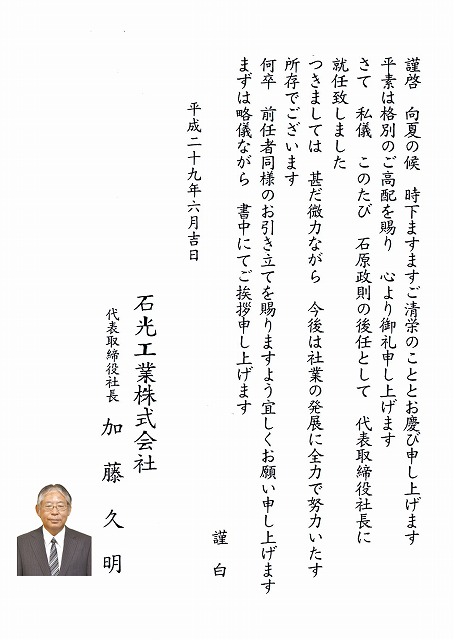 謹啓　向夏の候　時下ますますご清栄のこととお慶び申し上げます
平素は格別のご高配を賜り　心より御礼申し上げます
さて　私儀　このたび　石原政則の後任として　代表取締役社長に
就任致しました
つきましては　甚だ微力ながら　今後は社業の発展に全力で努力いたす
所存でございます
何卒　前任者同様のお引き立てを賜りますよう宜しくお願い申し上げます
まずは略儀ながら　書中にてご挨拶申し上げます
謹白
平成二十九年六月吉日
石光工業株式会社
代表取締役社長　加藤久明